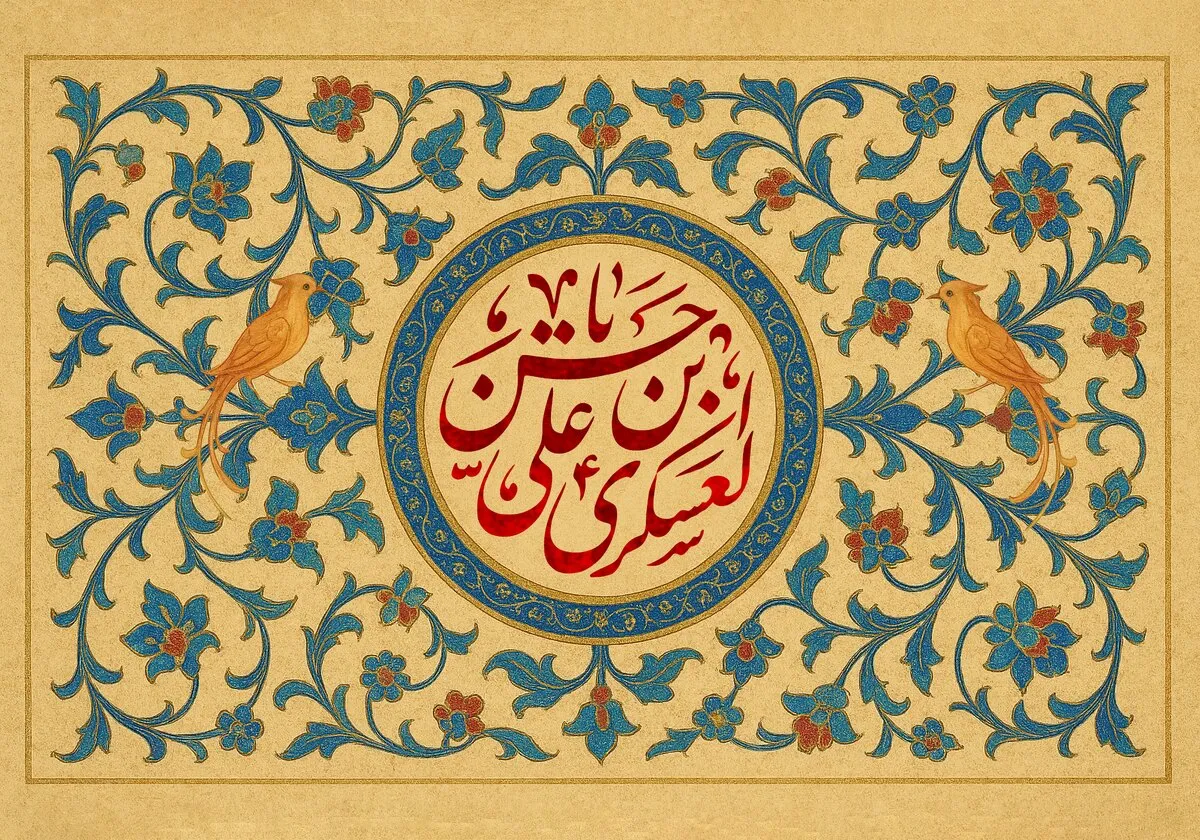 یا حسن
ابن علی
العسکری ؑ